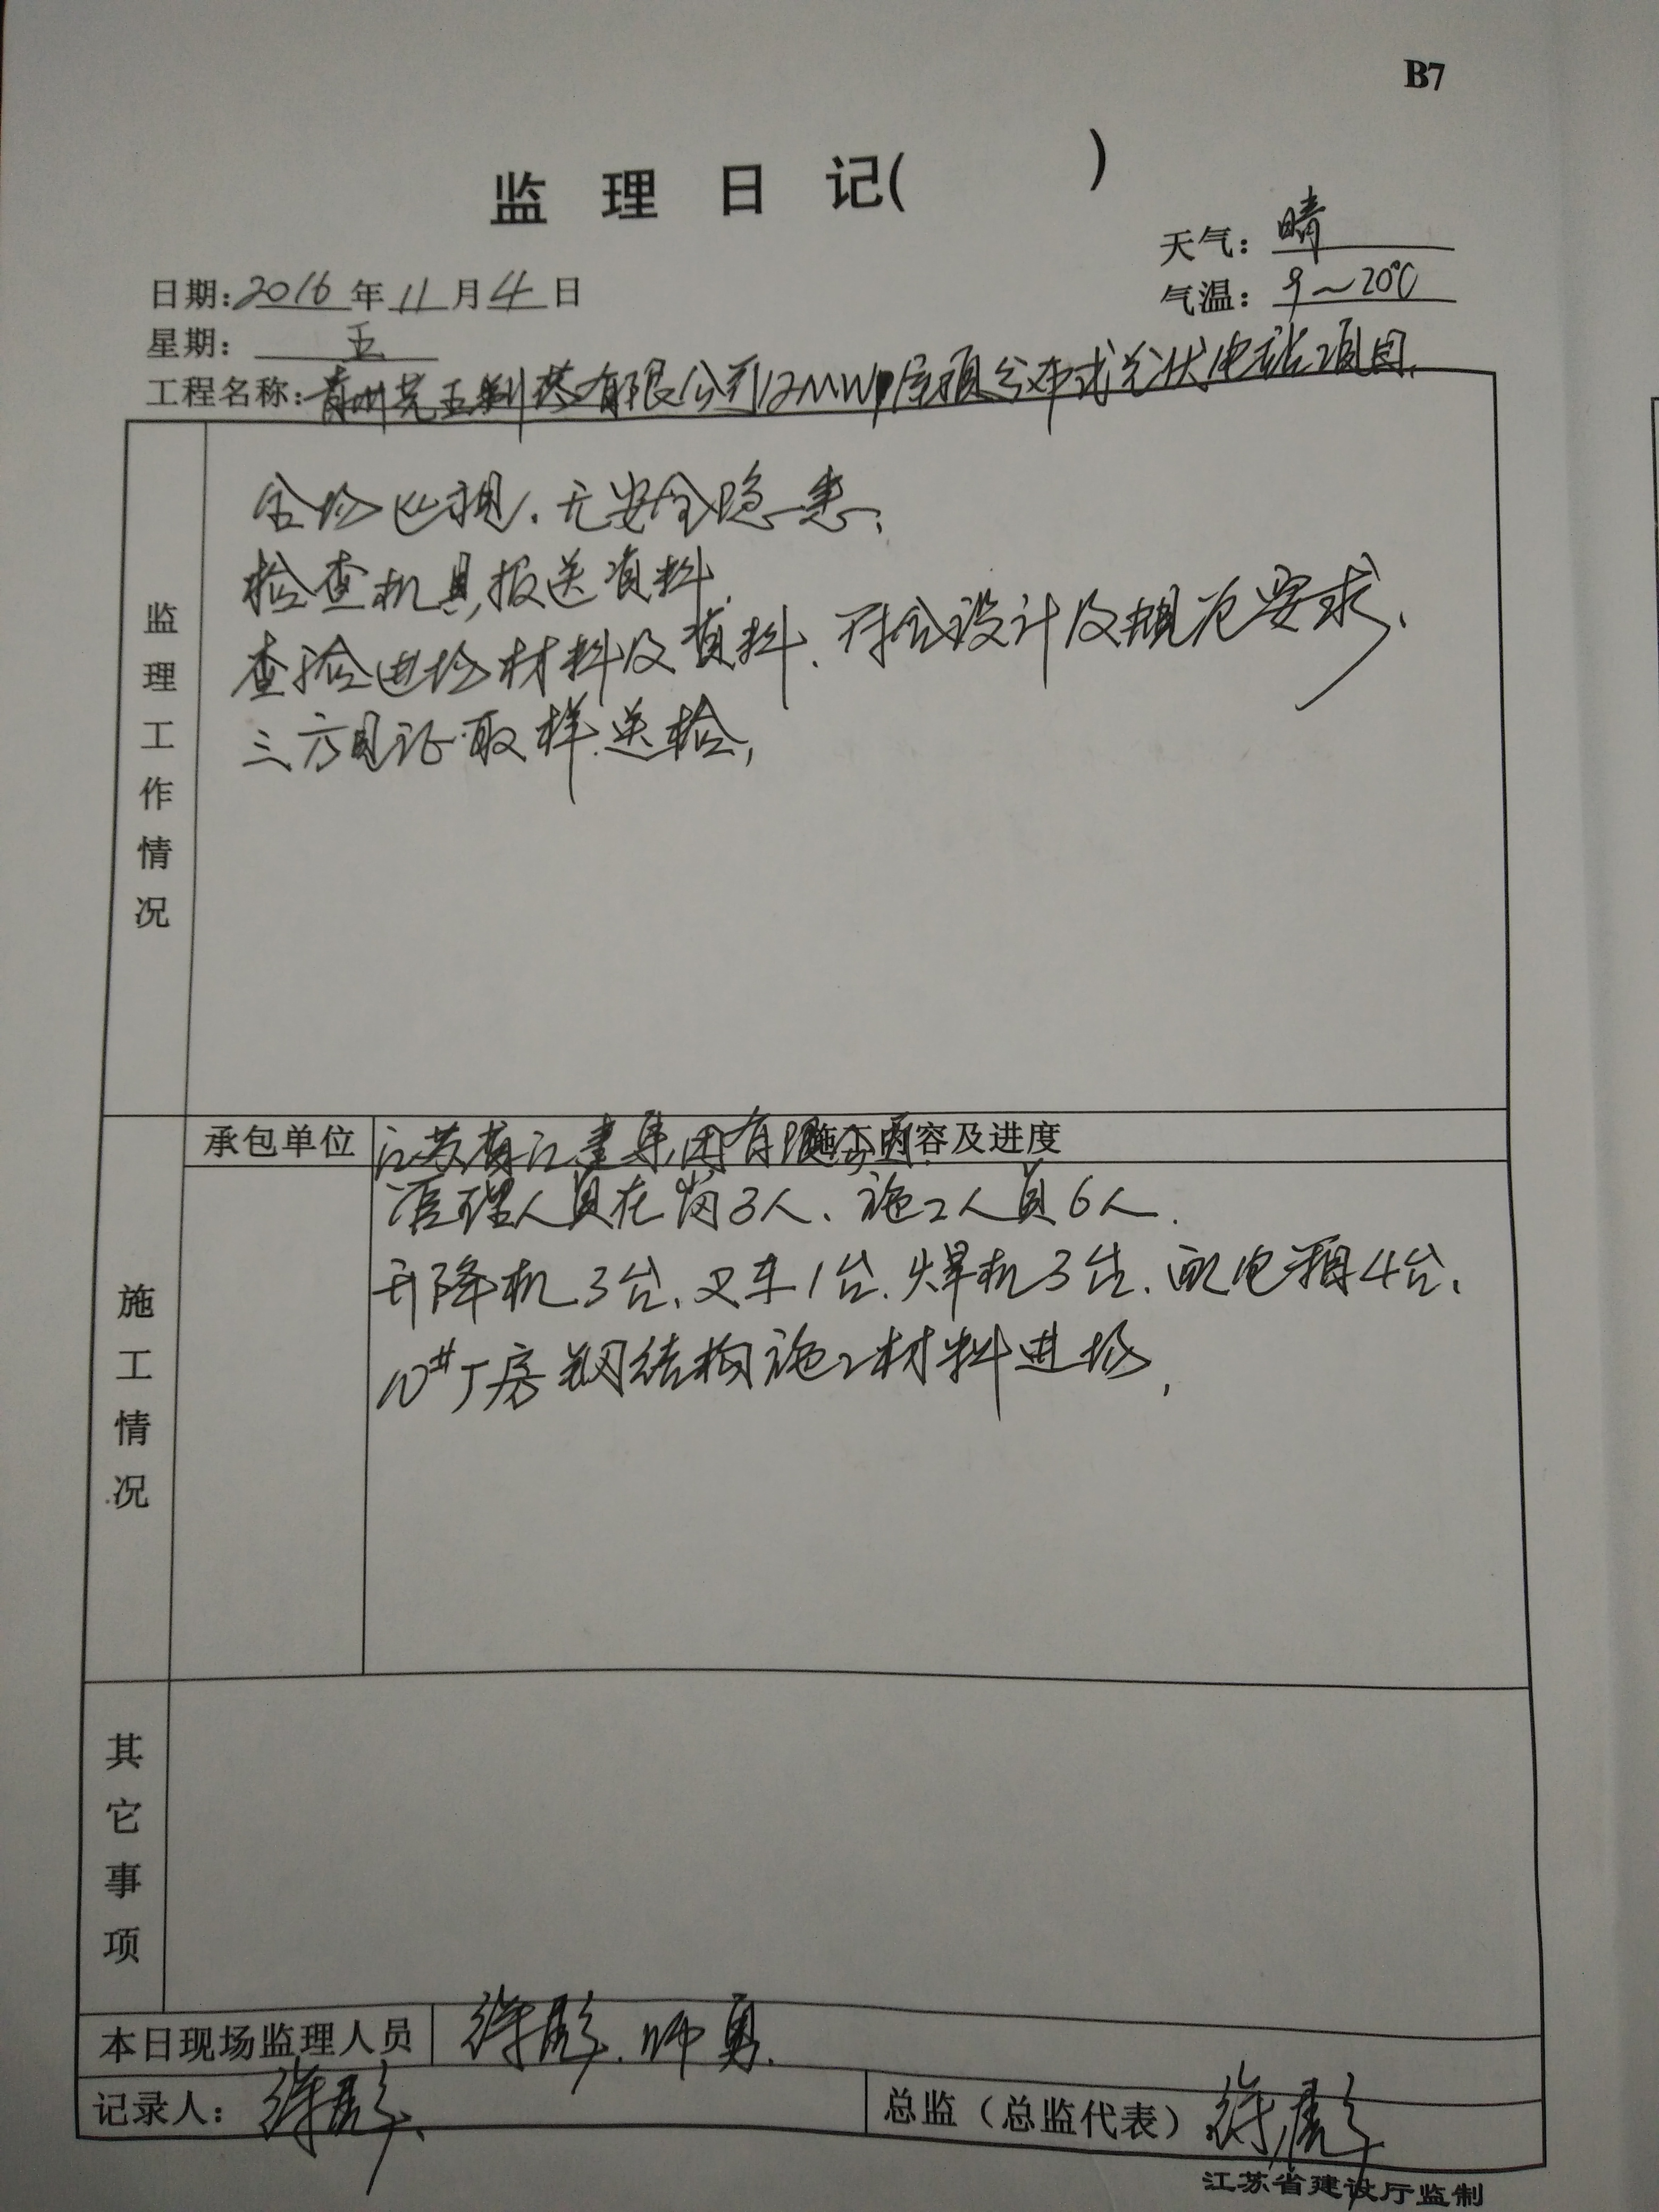 B7
监 理 日 记( )
天气: 晴
日期: 2016 年 11 月 4 日
气温: 9~20℃
星期: 五
工程名称: 青州尧王制药有限公司12MWp屋顶分布式光伏电站项目.
监理工作情况
全场巡视.无安全隐患.
检查机具,报送资料.
查验进场材料及资料.符合设计及规范要求.
三方见证取样.送检,
施工情况
承包单位
施工内容及进度
江苏南江建集团有限公司.
管理人员在岗3人、施工人员6人.
升降机3台、叉车1台.焊机3台.配电箱4台.
10#厂房钢结构施工材料进场,
其它事项
本日现场监理人员
勇.
记录人:
总监(总监代表)
江苏省建设厅监制